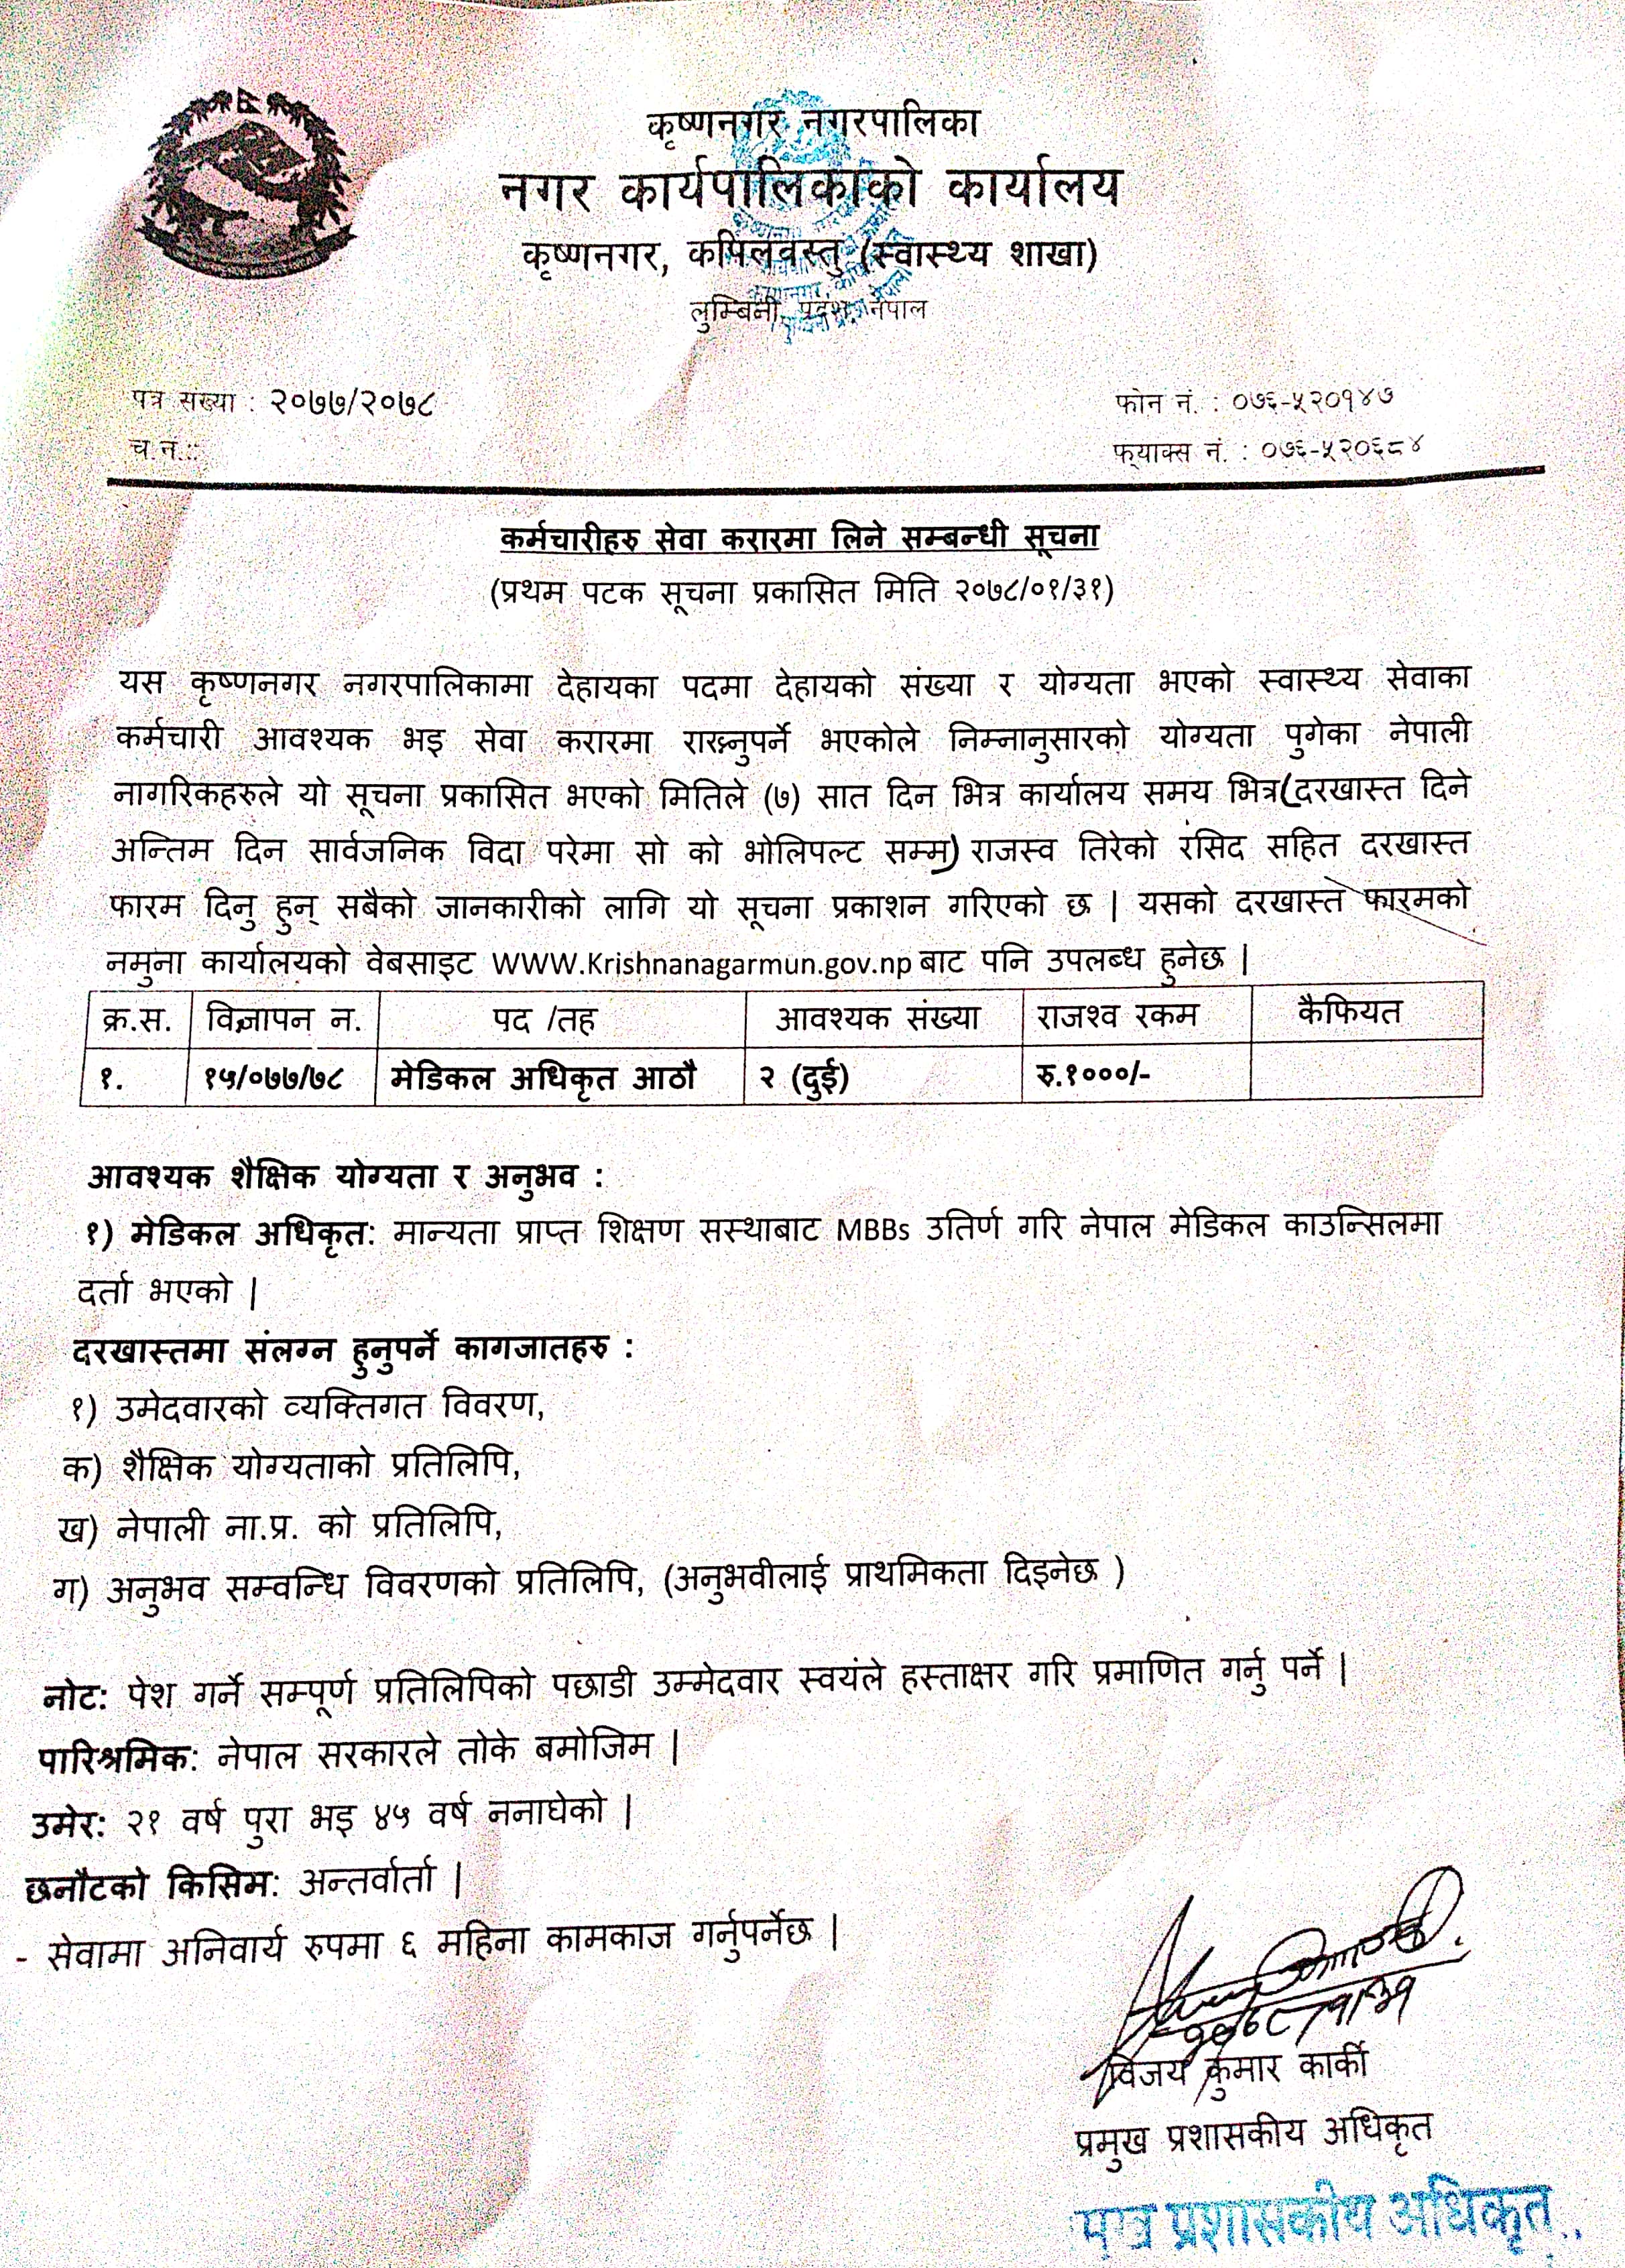 कृष्णनगर नगरपालिका
नगर कार्यपालिकाको कार्यालय
कृष्णनगर, कपिलवस्तु (स्वास्थ्य शाखा)
लुम्बिनी प्रदेश, नेपाल
पत्र संख्या : २०७७/२०७८
फोन नं. : ०७६-५२०१४७
च.न.::
फ्याक्स नं. : ०७६-५२०६८४
कर्मचारीहरु सेवा करारमा लिने सम्बन्धी सूचना
(प्रथम पटक सूचना प्रकासित मिति २०७८/०१/३१)
यस कृष्णनगर नगरपालिकामा देहायका पदमा देहायको संख्या र योग्यता भएको स्वास्थ्य सेवाका
कर्मचारी आवश्यक भइ सेवा करारमा राख्नुपर्ने भएकोले निम्नानुसारको योग्यता पुगेका नेपाली
नागरिकहरुले यो सूचना प्रकासित भएको मितिले (७) सात दिन भित्र कार्यालय समय भित्र(दरखास्त दिने
अन्तिम दिन सार्वजनिक विदा परेमा सो को भोलिपल्ट सम्म) राजस्व तिरेको रसिद सहित दरखास्त
फारम दिनु हुन् सबैको जानकारीको लागि यो सूचना प्रकाशन गरिएको छ | यसको दरखास्त फारमको
नमुना कार्यालयको वेबसाइट WWW.Krishnanagarmun.gov.np बाट पनि उपलब्ध हुनेछ |
क्र.स. विज्ञापन न. पद /तह आवश्यक संख्या राजश्व रकम कैफियत
१. १५/०७७/७८ मेडिकल अधिकृत आठौ २ (दुई) रु.१०००/-
आवश्यक शैक्षिक योग्यता र अनुभव :
१) मेडिकल अधिकृत: मान्यता प्राप्त शिक्षण सस्थाबाट MBBs उतिर्ण गरि नेपाल मेडिकल काउन्सिलमा
दर्ता भएको |
दरखास्तमा संलग्न हुनुपर्ने कागजातहरु :
१) उमेदवारको व्यक्तिगत विवरण,
क) शैक्षिक योग्यताको प्रतिलिपि,
ख) नेपाली ना.प्र. को प्रतिलिपि,
ग) अनुभव सम्वन्धि विवरणको प्रतिलिपि, (अनुभवीलाई प्राथमिकता दिइनेछ )
नोट: पेश गर्ने सम्पूर्ण प्रतिलिपिको पछाडी उम्मेदवार स्वयंले हस्ताक्षर गरि प्रमाणित गर्नु पर्ने |
पारिश्रमिक: नेपाल सरकारले तोके बमोजिम |
उमेर: २१ वर्ष पुरा भइ ४५ वर्ष ननाघेको |
छनौटको किसिम: अन्तर्वार्ता |
- सेवामा अनिवार्य रुपमा ६ महिना कामकाज गर्नुपर्नेछ |
२०७८/१/३१
विजय कुमार कार्की
प्रमुख प्रशासकीय अधिकृत
प्रशासकीय अधिकृत